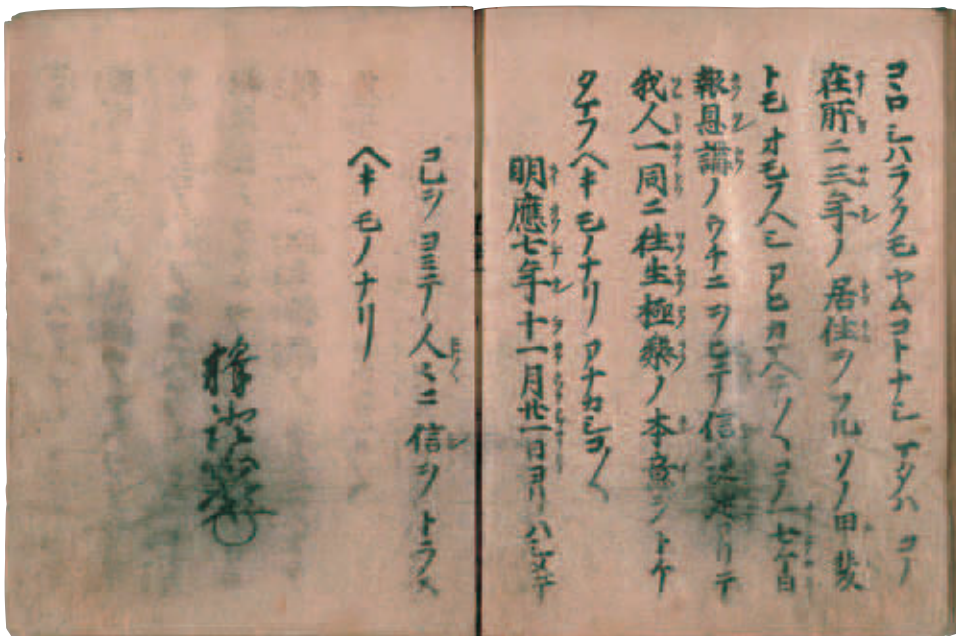 コロシハラクモヤムコトナシ マタハ コノ
在所ニ三年ノ居住ヲフルソノ甲斐
トモオモフヘシ アヒカマヘテ〱 コノ一七ケ日
報恩講ノウチニヲヒテ信心決定アリテ
我人一同ニ往生極樂ノ本意ヲトケ
タマフヘキモノナリ アナカシコ〱
明應七年十一月廿一日ヨリハシメテ
コレヲヨミテ人〻ニ信ヲトラス
ヘキモノナリ
釋證如